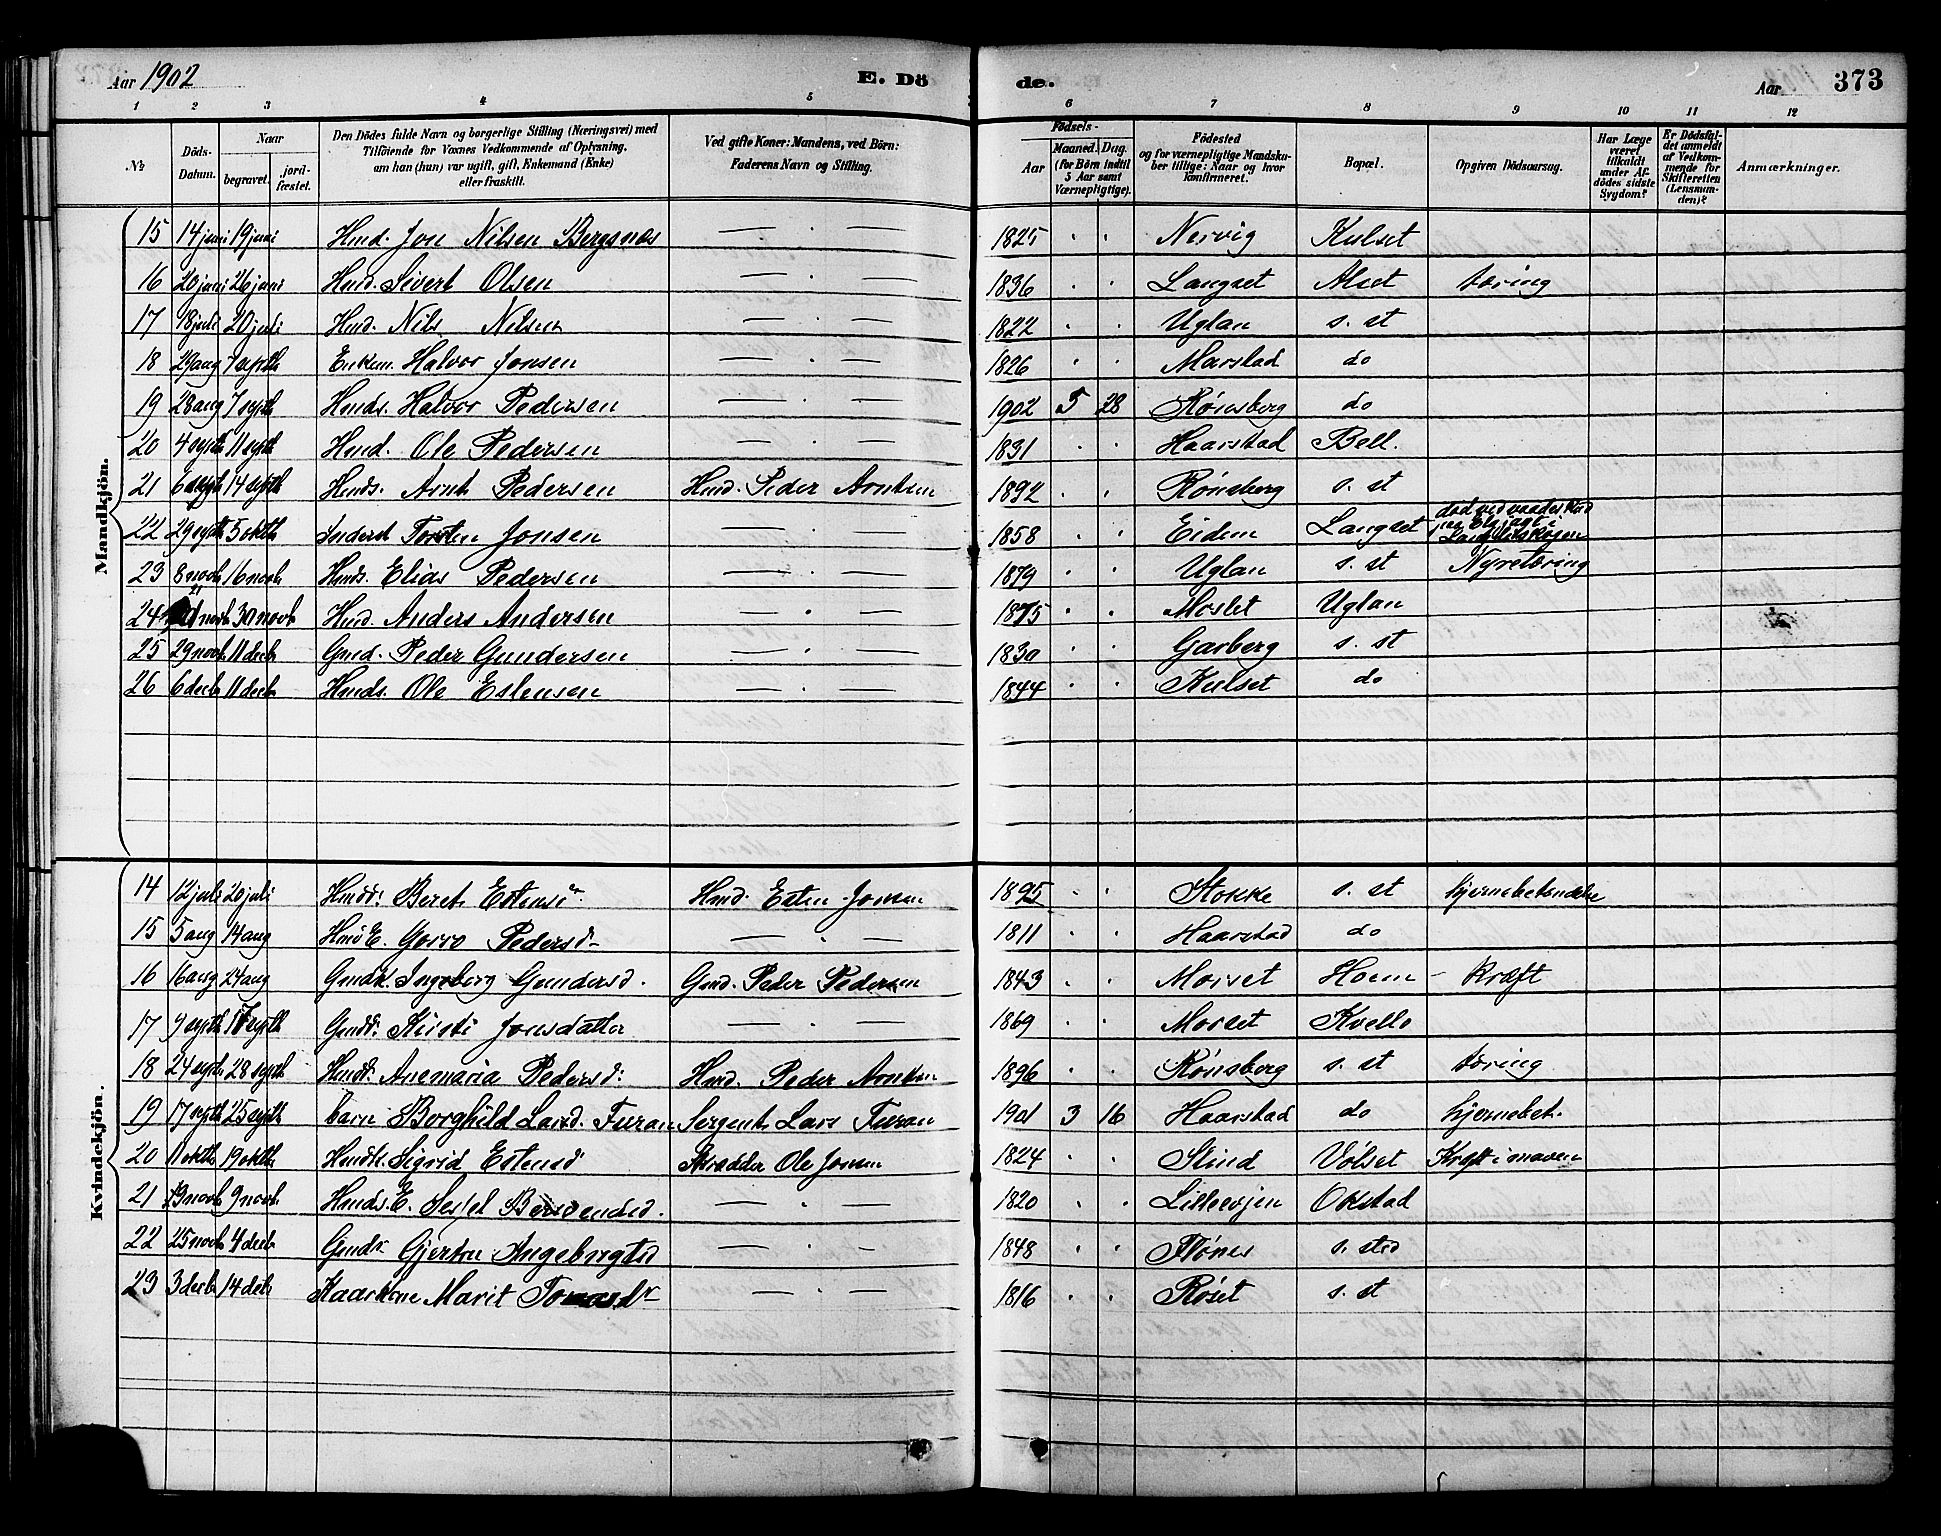 Aar 1902 E. Dö de. Aar 373
1 2 3 4 5 6 7 8 9 10 11 12
№ Döds-Datum. Naar begravet. jord-fæstet. Den Dödes fulde Navn og borgerlige Stilling (Næringsvei) med Tilföiende for Voxnes Vedkommende af Oplysning, om han (hun) var ugift, gift, Enkemand (Enke) eller fraskilt. Ved gifte Koner: Mandens, ved Börn: Faderens Navn og Stilling. Födsels- Aar Maaned. Dag. (for Börn indtil 5 Aar samt Værnepligtige). Födested og for værnepligtige Mandskaber tillige: Naar og hvor konfirmeret. Bopæl. Opgiven Dödsaarsag. Har Læge været tilkaldt under Afdödes sidste Sygdom? Er Dödsfaldet anmeldt af Vedkommende for Skifteretten (Lensmanden)? Anmærkninger.
Mandkjön.
15 14 juni 19 juni Hmd. Jon Nilsen Bergsnes — . — 1825 . . Nervig Kulset
16 20 juni 26 juni Hmd. Sivert Olsen — . — 1836 . . Langset Alset tæring
17 18 juli 20 juli Hmd. Nils Nilsen — . — 1822 . . Uglan s. st
18 29 aug 7 septb Enkem. Halvor Jonsen — . — 1826 . . Marstad do
19 28 aug 7 septb Hmds. Halvor Pedersen — . — 1902 5 28 Rönsberg do
20 4 septb 11 septb Hmd. Ole Pedersen — . — 1831 . . Haarstad Bell.
21 6 septb 14 septb Hmds. Arnt Pedersen Hmd. Peder Arntsen 1892 . . Rönsberg s. st
22 29 septb 5 oktb Inderst Torsten Jonsen — . — 1858 . . Eidem Langset död ved vaadeskud paa Elgjagt i Langsetskogen
23 8 novb 16 novb Hmds. Elias Pedersen — . — 1879 . . Uglan s. st Nyretæring
24 21 novb 30 novb Hmd. Anders Andersen — . — 1875 . . Moslet Uglan
25 29 novb 11 decb Gmd. Peder Gundersen — . — 1830 . . Garberg s. st
26 6 decb 11 decb Hmds. Ole Estensen — . — 1844 . . Kulset do
Kvindekjön.
14 12 juli 20 juli Hmdd. Beret Estensdr Hmd. Esten Jonsen 1895 . . Stokke s. st hjernebetændelse
15 5 aug 14 aug Hmd E. Gorro Pedersd — . — 1811 . . Haarstad do
16 16 aug 24 aug Gmdk. Ingeborg Gundersd. Gmd. Peder Pedersen 1843 . . Morset Hoem kræft
17 9 septb 17 septb Gmdd. Kirsti Jonsdatter — . — 1869 . . Morset Kvello
18 24 septb 28 septb Hmdd. Anemaria Pedersd: Hmd. Peder Arntsen 1896 . . Rönsberg s. st tæring
19 17 septb 25 septb barn Borghild Larsd. Furan Sergent Lars Furan 1901 3 16 Haarstad do hjernebet.
20 11 oktb 19 oktb Hmdk. Sigrid Estensd Skrædder Ole Jonsen 1824 . . Stind Völset Kræft i maven
21 novb 9 novb Hmds. E. Sessel Bersvendsd. — . — 1820 . . Lillevojen Okstad
22 25 novb 4 decb Gmdk. Gjertru Ingebrigtsd — . — 1848 . . Flönes s. sted
23 3 decb 14 decb Kaarkone Marit Tomasdr — . — 1816 . . Röset s. st